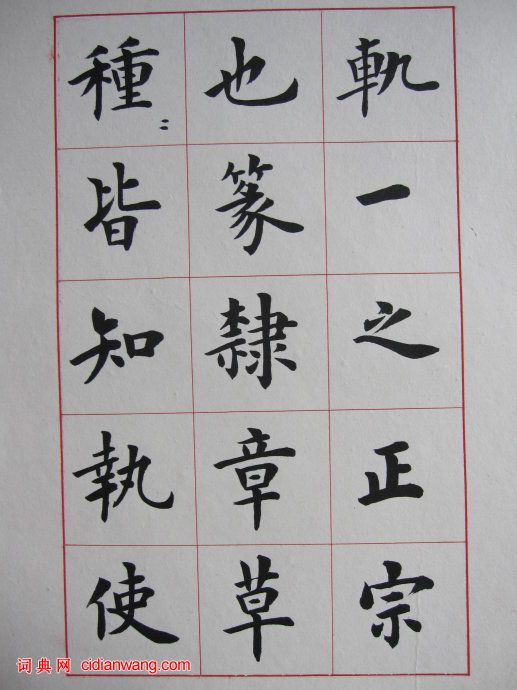 軌一之正宗
也篆隸章草
種〻皆知執使
词典网 cidianwang.com